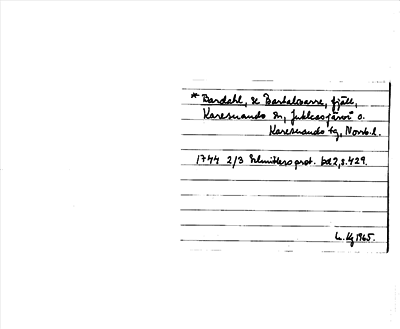 * Bardahl, se Bartalvarre, fjäll,
Karesuando sn, Jukkasjärvi o.
Karesuando tg, Norrb. l.
1744 2/3 prot. bd 2, s. 429.
1965.